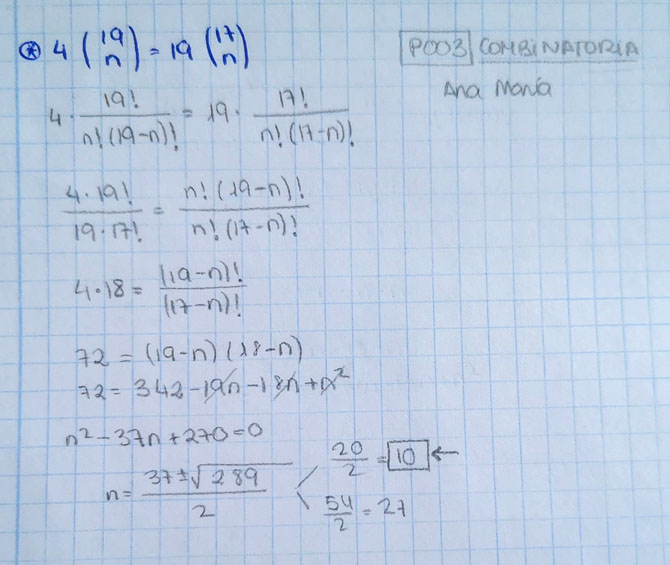 ⊛ 4 (19 n) = 19 (17 n)
P003 COMBINATORIA
Ana María
4 · 19! / n!(19-n)! = 19 · 17! / n!(17-n)!
4·19! / 19·17! = n!(19-n)! / n!(17-n)!
4·18 = (19-n)! / (17-n)!
72 = (19-n)(18-n)
72 = 342 - 19n - 18n + n²
n² - 37n + 270 = 0
n = 37 ± √289 / 2
20/2 = 10 ←
54/2 = 27